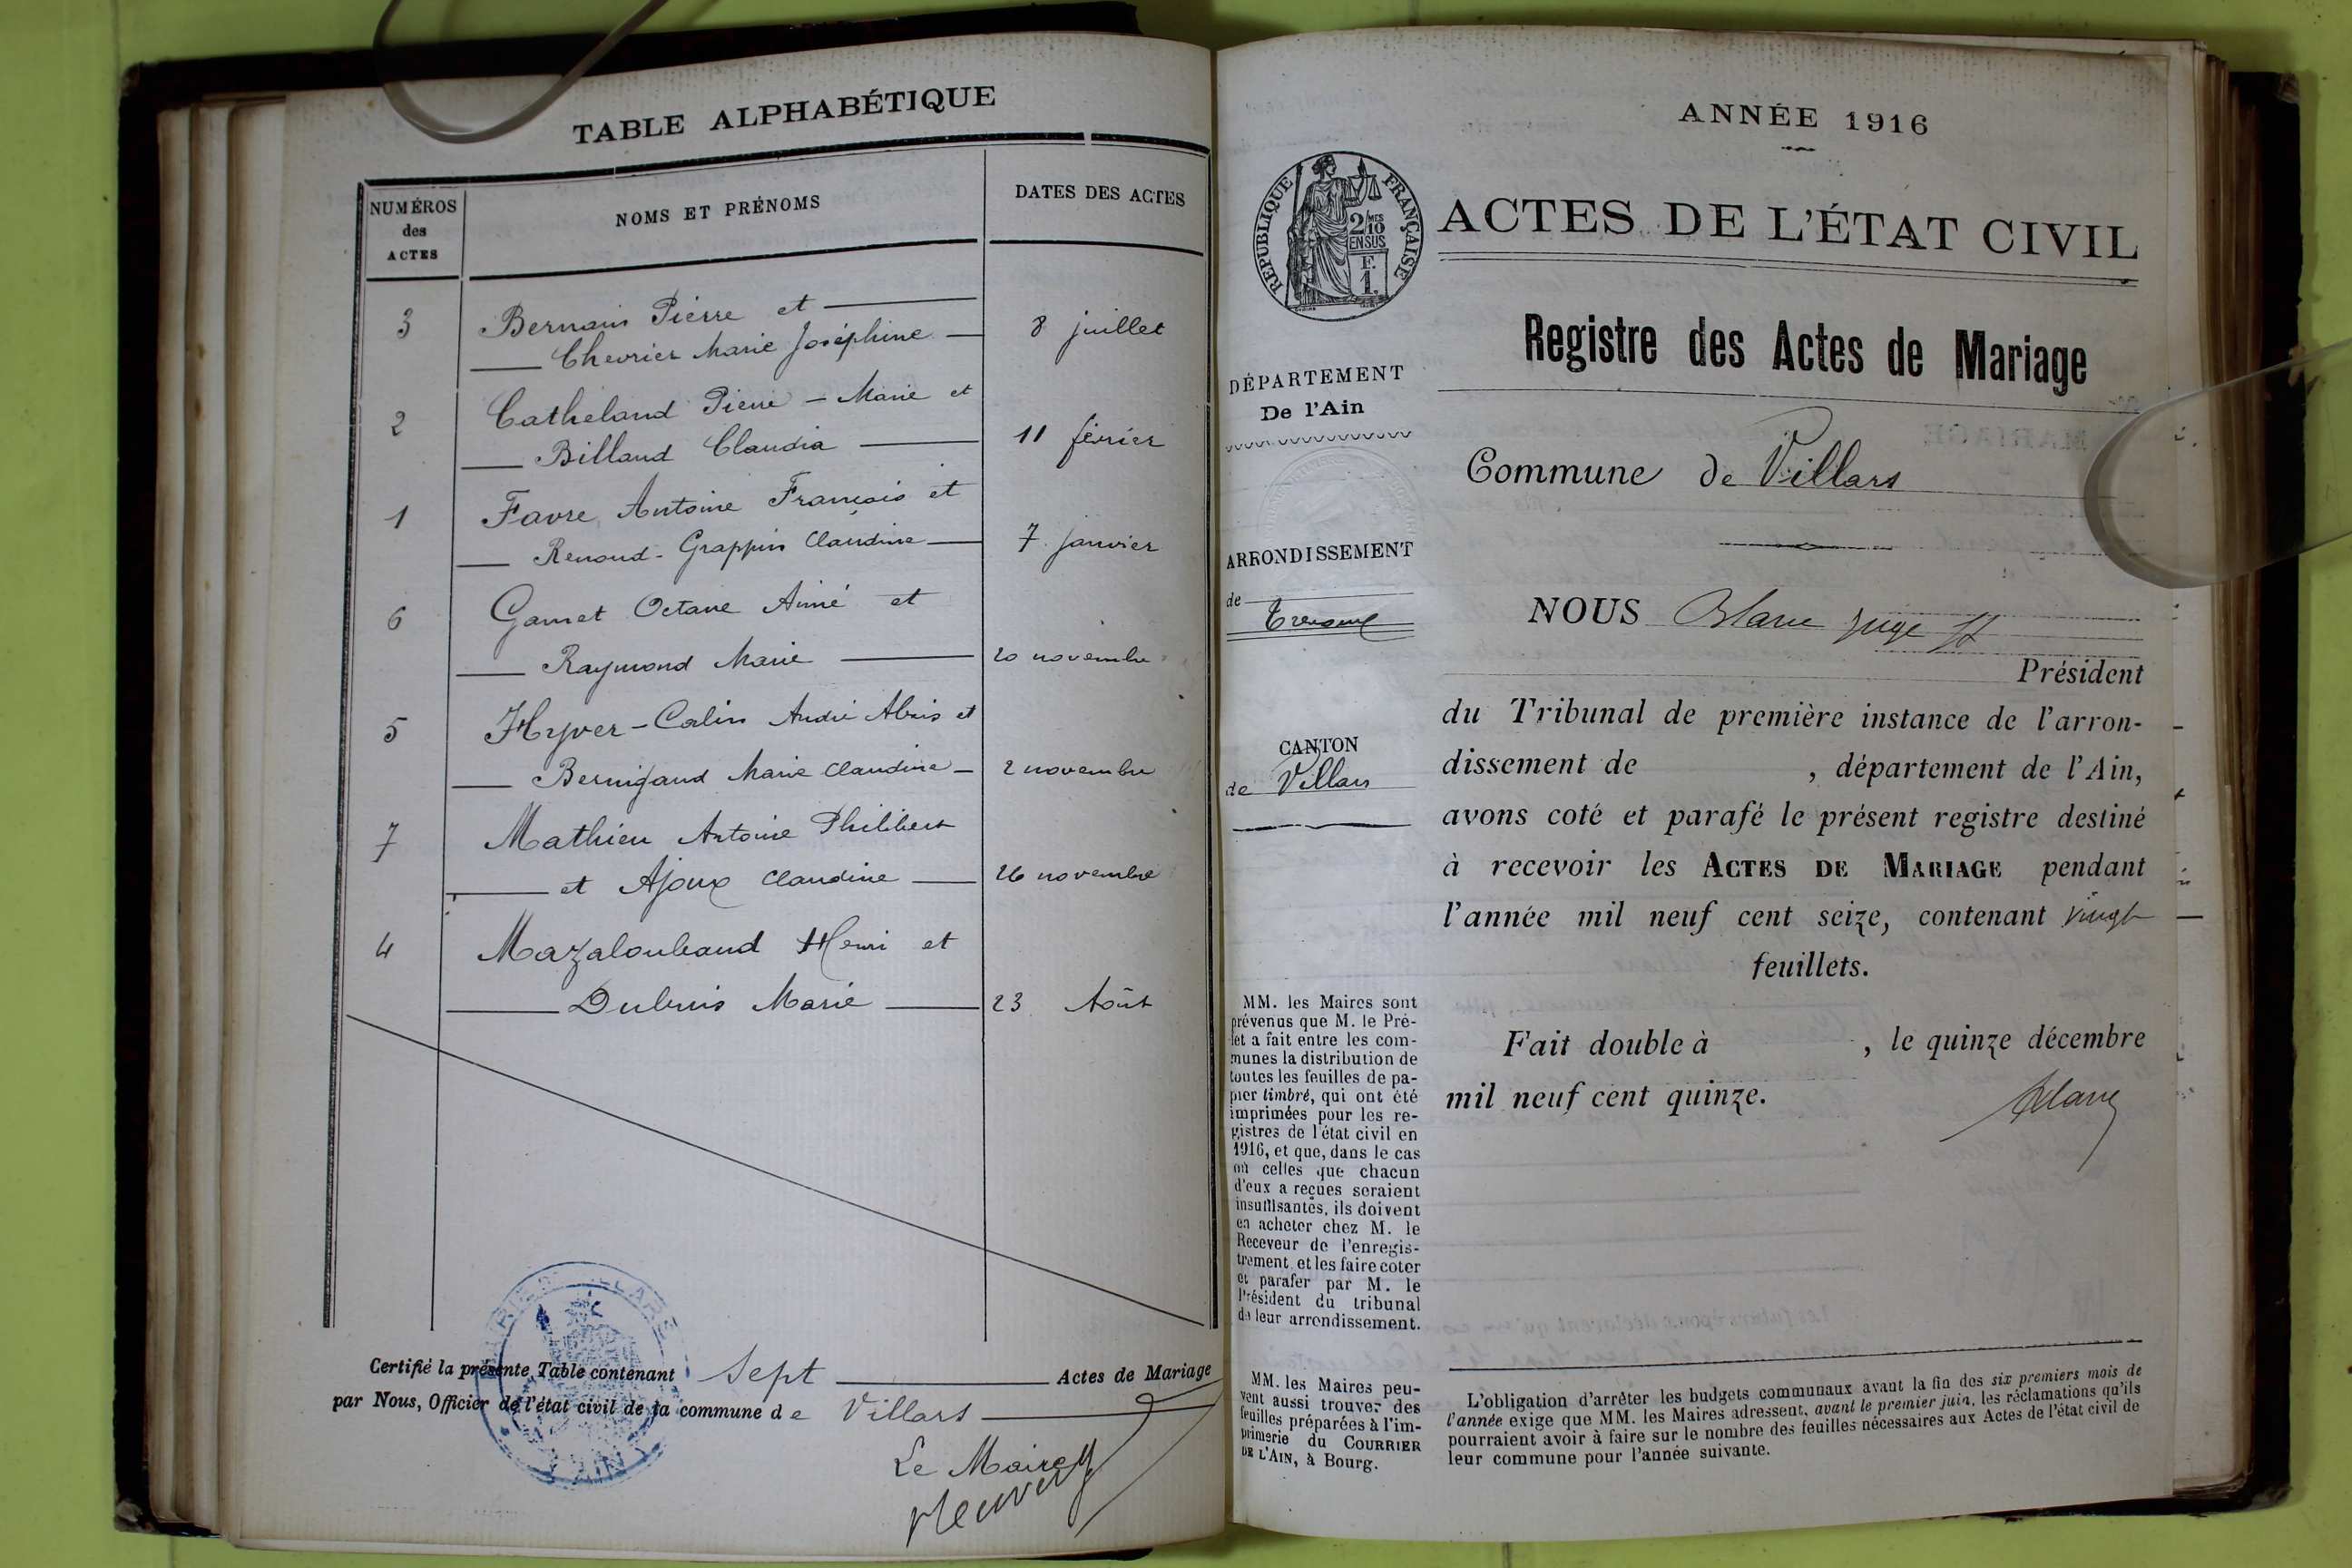 TABLE ALPHABÉTIQUE
NUMÉROS
des
ACTES
NOMS ET PRÉNOMS
DATES DES ACTES
3 Bernain Pierre et
Chevrier Marie Joséphine 8 juillet
2 Catheland Pierre - Marie et
Billaud Claudia 11 février
1 Favre Antoine François et
Renoud-Grappin Claudine 7 janvier
6 Gamet Octave Aimé et
Raymond Marie 20 novembre
5 Hyver-Calin André et
Bernigaud Marie Claudine 2 novembre
7 Mathieu Antoine Philibert
et Ajoux Claudine 26 novembre
4 Mazaloubaud Henri et
Dubuis Marie 23 Août
Certifié la présente Table contenant Sept Actes de Mariage
par Nous, Officier de l'état civil de la commune de Villars
Le Maire
ANNÉE 1916
RÉPUBLIQUE FRANÇAISE
2/10 MES
EN SUS
F.
1.
ACTES DE L'ÉTAT CIVIL
Registre des Actes de Mariage
DÉPARTEMENT
De l'Ain
Commune de Villars
ARRONDISSEMENT
de Trévoux
CANTON
de Villars
NOUS Blanc juge
Président
du Tribunal de première instance de l'arron-
dissement de , département de l'Ain,
avons coté et parafé le présent registre destiné
à recevoir les ACTES DE MARIAGE pendant
l'année mil neuf cent seize, contenant vingt
feuillets.
Fait double à , le quinze décembre
mil neuf cent quinze.
Blanc
MM. les Maires sont
prévenus que M. le Pré-
fet a fait entre les com-
munes la distribution de
toutes les feuilles de pa-
pier timbré, qui ont été
imprimées pour les re-
gistres de l'état civil en
1916, et que, dans le cas
où celles que chacun
d'eux a reçues seraient
insuffisantes, ils doivent
en acheter chez M. le
Receveur de l'enregis-
trement et les faire coter
et parafer par M. le
Président du tribunal
de leur arrondissement.
MM. les Maires peu-
vent aussi trouver des
feuilles préparées à l'im-
primerie du COURRIER
DE L'AIN, à Bourg.
L'obligation d'arrêter les budgets communaux avant la fin des six premiers mois de
l'année exige que MM. les Maires adressent, avant le premier juin, les réclamations qu'ils
pourraient avoir à faire sur le nombre des feuilles nécessaires aux Actes de l'état civil de
leur commune pour l'année suivante.